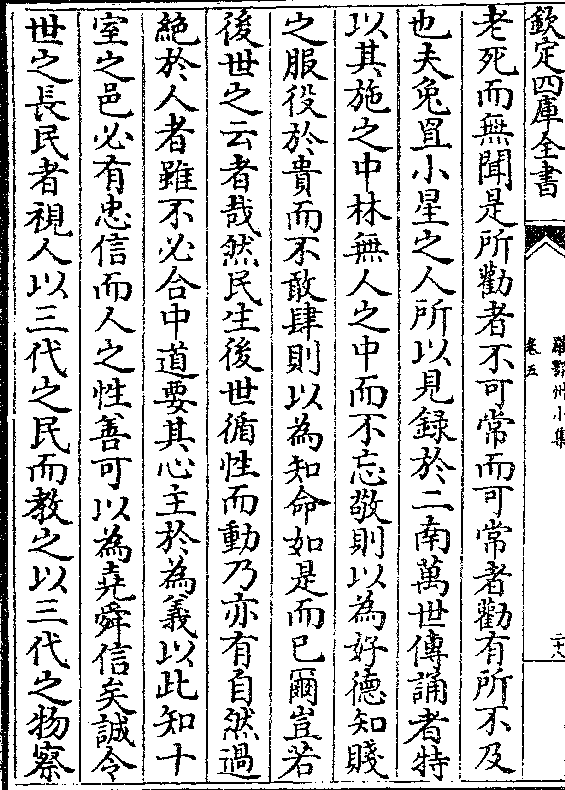 欽定四庫全書
羅鄂州小集
卷五
二十八
老死而無聞是所勸者不可常而可常者勸有所不及
也夫兔罝小星之人所以見録於二南萬世傳誦者特
以其施之中林無人之中而不忘敬則以為好德知賤
之服役於貴而不敢肆則以為知命如是而已爾豈若
後世之云者哉然民生後世循性而動乃亦有自然過
絶於人者雖不必合中道要其心主於為義以此知十
室之邑必有忠信而人之性善可以為堯舜信矣誠令
世之長民者視人以三代之民而教之以三代之物察